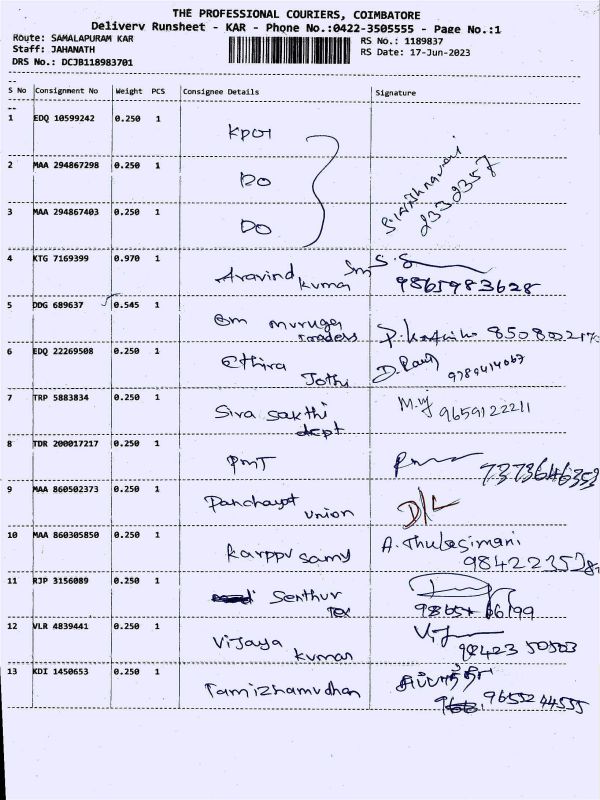 THE PROFESSIONAL COURIERS, COIMBATORE
Delivery Runsheet - KAR - Phone No.:0422-3505555 - Page No.:1
Route: SAMALAPURAM KAR
RS No.: 1189837
Staff: JAHANATH
RS Date: 17-Jun-2023
DRS No.: DCJB118983701
S No Consignment No Weight PCS Consignee Details Signature
1 EDQ 10599242 0.250 1 KPOT
2 MAA 294867298 0.250 1 DO
3 MAA 294867403 0.250 1 DO
2332357
4 KTG 7169399 0.970 1 Aravind Kumar Sm
9865983628
5 DDG 689637 0.545 1 Om muruga traders
6 EDQ 22269508 0.250 1 Ethira Jothi
9789414067
7 TRP 5883834 0.250 1 Siva Sakthi dept
9659122211
8 TDR 200017217 0.250 1 PMT
7373646353
9 MAA 860502373 0.250 1 Panchayat union D/L
10 MAA 860305850 0.250 1 Karppu Samy A. Thulasimani
11 RJP 3156089 0.250 1 Senthur Tex
12 VLR 4839441 0.250 1 Vijaya Kumar
98423 50503
13 KDI 1450653 0.250 1 Tamizhamudhan
9655244555